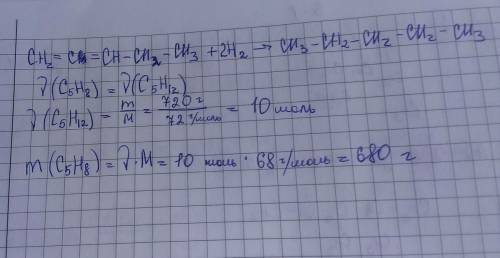 CH₂ = CH = CH - CH₂ - CH₃ + 2H₂ → CH₃ - CH₂ - CH₂ - CH₂ - CH₃
ν(C₅H₈) = ν(C₅H₁₂)
ν(C₅H₁₂) = m/M = 720 г / 72 г/моль = 10 моль
m(C₅H₈) = ν · M = 10 моль · 68 г/моль = 680 г